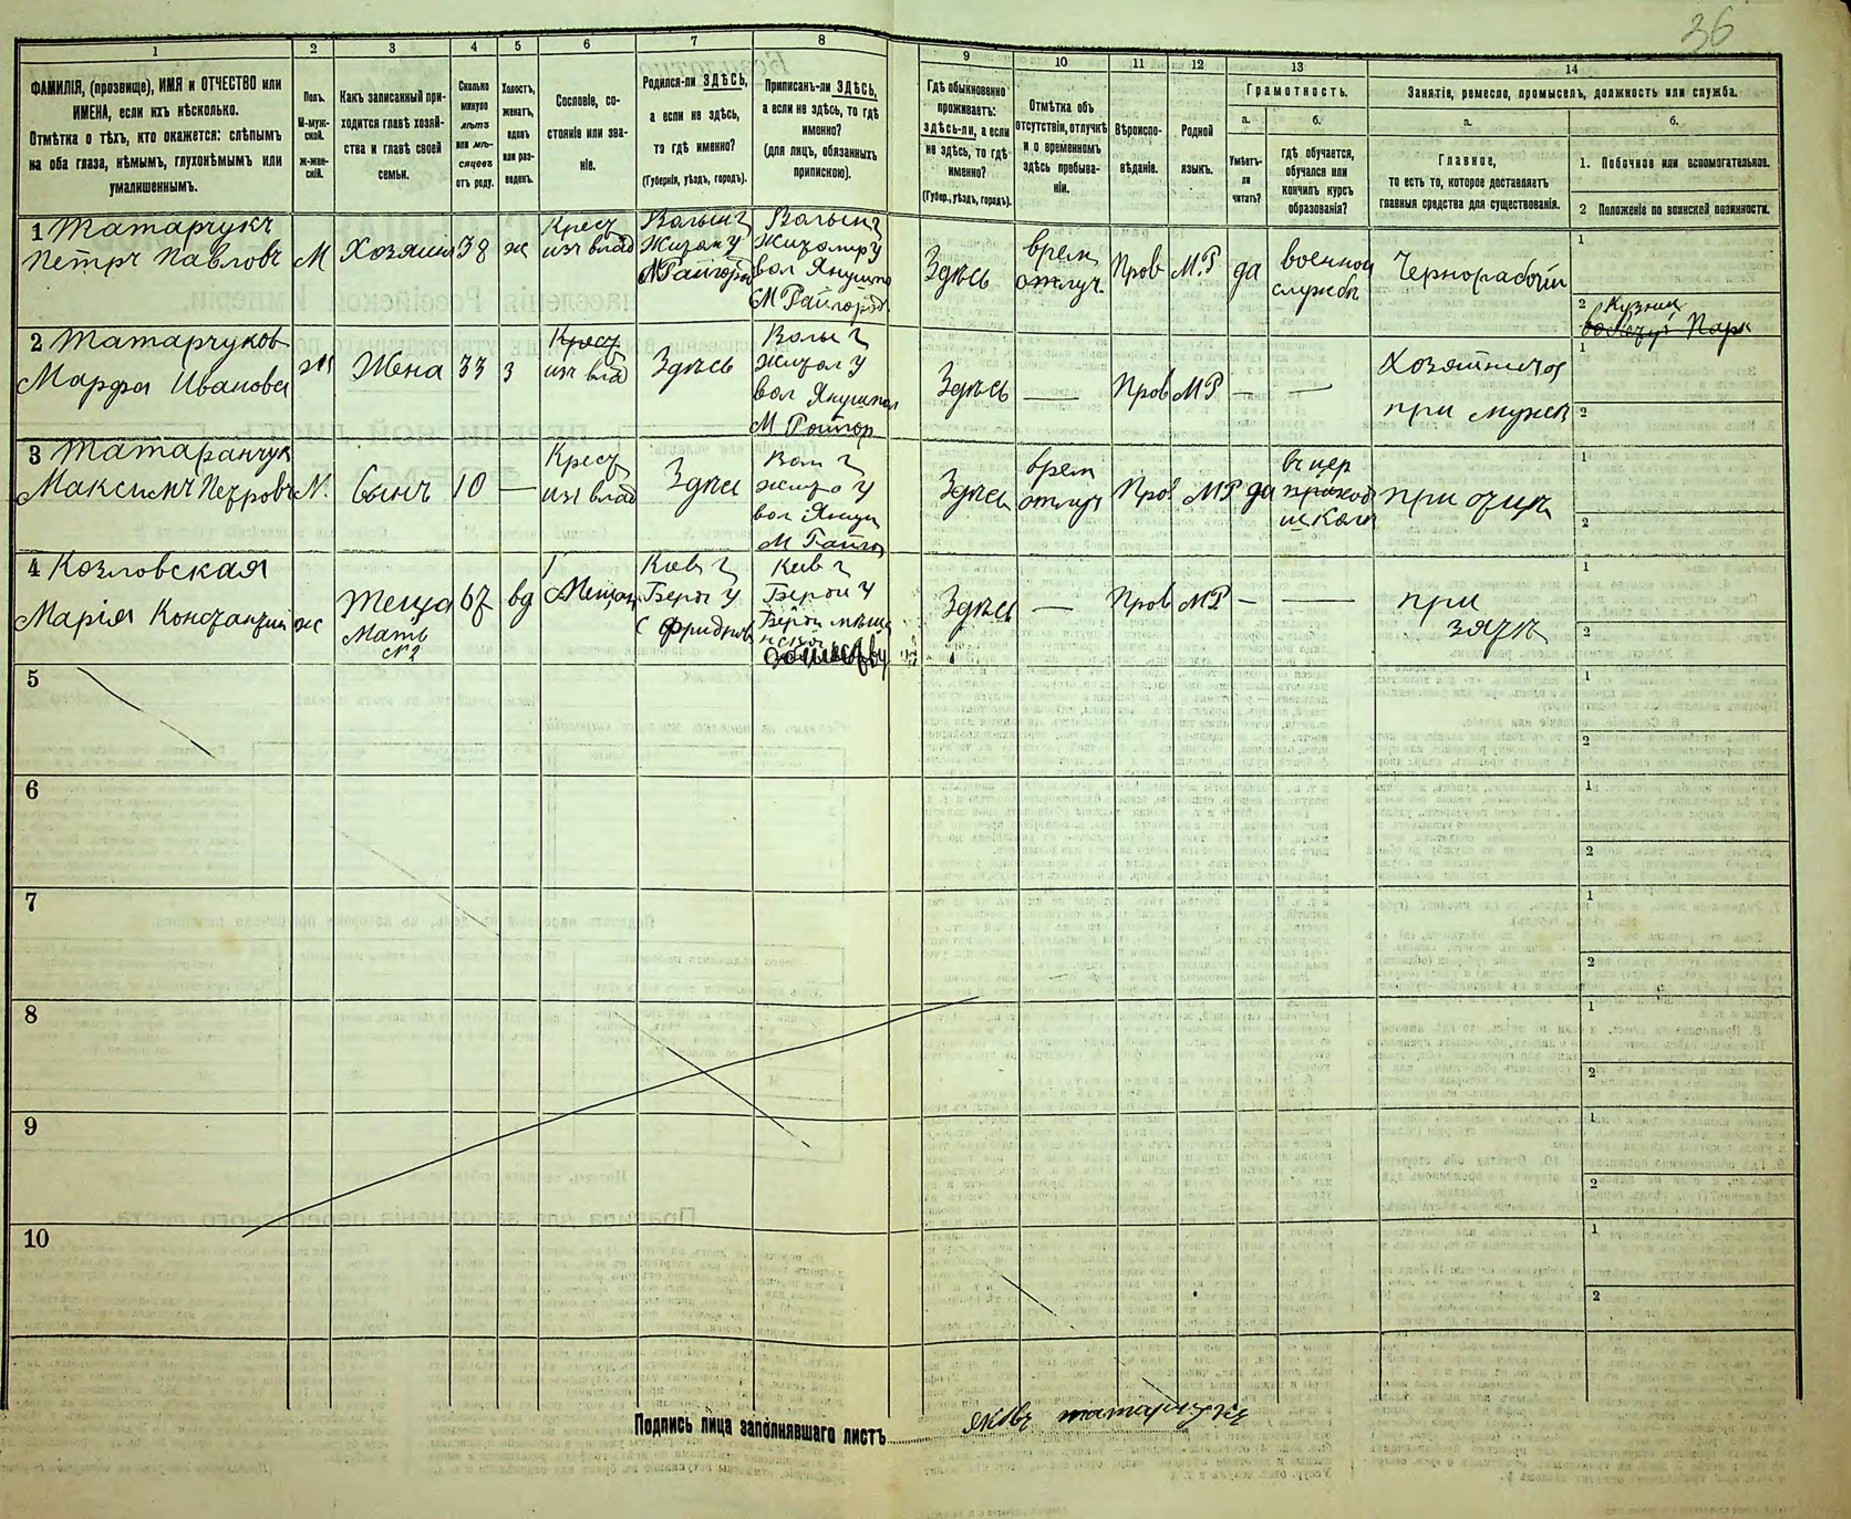 36
1
2
3
4
5
6
7
8
9
10
11
12
13
14
ФАМИЛІЯ, (прозвище), ИМЯ и ОТЧЕСТВО или
ИМЕНА, если ихъ нѣсколько.
Отмѣтка о тѣхъ, кто окажется: слѣпымъ
на оба глаза, нѣмымъ, глухонѣмымъ или
умалишеннымъ.
Полъ.
М-муж-
ской.
ж-жен-
скій.
Какъ записанный при-
ходится главѣ хозяй-
ства и главѣ своей
семьи.
Сколько
минуло
лѣтъ
или мѣ-
сяцевъ
отъ роду.
Холостъ,
женатъ,
вдовъ
или раз-
веденъ.
Сословіе, со-
стояніе или зва-
ніе.
Родился-ли ЗДѢСЬ,
а если не здѣсь,
то гдѣ именно?
(Губернія, уѣздъ, городъ).
Приписанъ-ли ЗДѢСЬ,
а если не здѣсь, то гдѣ
именно?
(для лицъ, обязанныхъ
припискою).
Гдѣ обыкновенно
проживаетъ:
здѣсь-ли, а если
не здѣсь, то гдѣ
именно?
(Губер., уѣздъ, городъ).
Отмѣтка объ
отсутствіи, отлучкѣ
и о временномъ
здѣсь пребыва-
ніи.
Вѣроиспо-
вѣданіе.
Родной
языкъ.
Грамотность.
а.
Умѣетъ-
ли
читать?
б.
гдѣ обучается,
обучался или
кончилъ курсъ
образованія?
Занятіе, ремесло, промыселъ, должность или служба.
а.
Главное,
то есть то, которое доставляетъ
главныя средства для существованія.
б.
1. Побочное или вспомогательное.
2 Положеніе по воинской повинности.
1 Татарчукъ
Петръ Павловъ
М
Хозяин
38
ж
Крест
изъ влад
Волын г
Житом у
М Райгород
Волын г
Житомир у
вол Янушпо
М Райгород
Здѣсь
врем
отлуч.
Пров
М.Р
да
военной
службы
Чернорабочій
1
2 Кузнец
Парк
2 Татарчуков
Марфа Иванова
Жена
33
з
Крест
изъ влад
Здѣсь
Волы г
Житом у
вол Янушпол
М Райгор
Здѣсь
—
Пров
МР
—
—
Хозяйничает
при мужѣ
1
2
3 Татаранчук
Максимъ Петровъ
М.
Сынъ
10
—
Крест
изъ влад
Здѣсь
Вол г
Жито у
вол Януш
М Райго
Здѣсь
врем
отлуч
Пров
МР
да
въ цер
приход
школѣ
при отцѣ
1
2
4 Козловская
Марія Константин
ж
Теща
Мать
№2
67
вд
Мещан
Киев г
Берди у
с Фридров
Киев г
Берди у
Берди мѣща
нскому
обществу
Здѣсь
—
Пров
МР
—
—
при
зятѣ
1
2
5
1
2
6
1
2
7
1
2
8
1
2
9
1
2
10
1
2
Подпись лица заполнявшаго листъ
яковъ татарчукъ